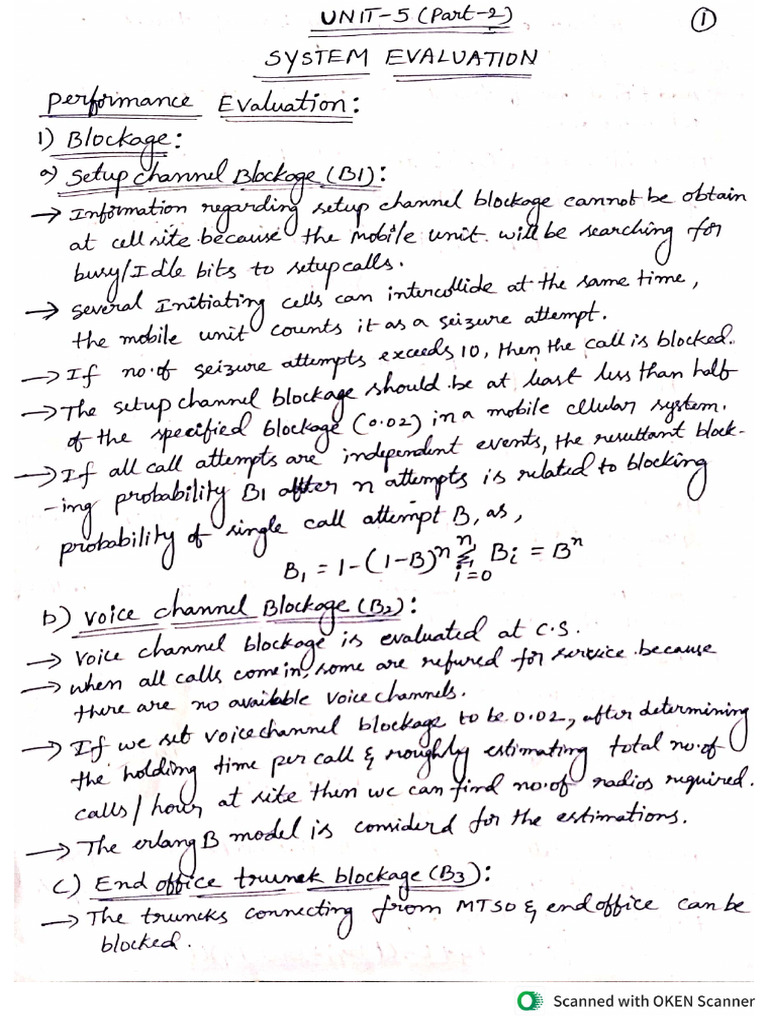 UNIT-5 (Part-2)
①
SYSTEM EVALUATION
Performance Evaluation:
1) Blockage:
a) Setup channel Blockage (B1):
→ Information regarding setup channel blockage cannot be obtain
at cell site because the mobile unit will be searching for
busy/Idle bits to setup calls.
→ several Initiating cells can intercollide at the same time,
the mobile unit counts it as a seizure attempt.
→ If no.of seizure attempts exceeds 10, then the call is blocked.
→ The setup channel blockage should be at least less than half
of the specified blockage (0.02) in a mobile cllular system.
→ If all call attempts are independent events, the resultant block-
-ing probability B1 after n attempts is related to blocking
probability of single call attempt B, as,
B₁ = 1-(1-B)ⁿ Σ Bi = Bⁿ
n
i=0
b) Voice channel Blockage (B₂):
→ Voice channel blockage is evaluated at C.S.
→ when all calls come in, some are refured for service because
there are no available voice channels.
→ If we set voice channel blockage to be 0.02, after determining
the holding time per call & roughly estimating total no.of
calls/hour at site then we can find no.of radios required.
→ The erlang B model is considerd for the estimations.
c) End office trunek blockage (B3):
→ The truncks connecting from MTSO & end office can be
blocked.
Scanned with OKEN Scanner